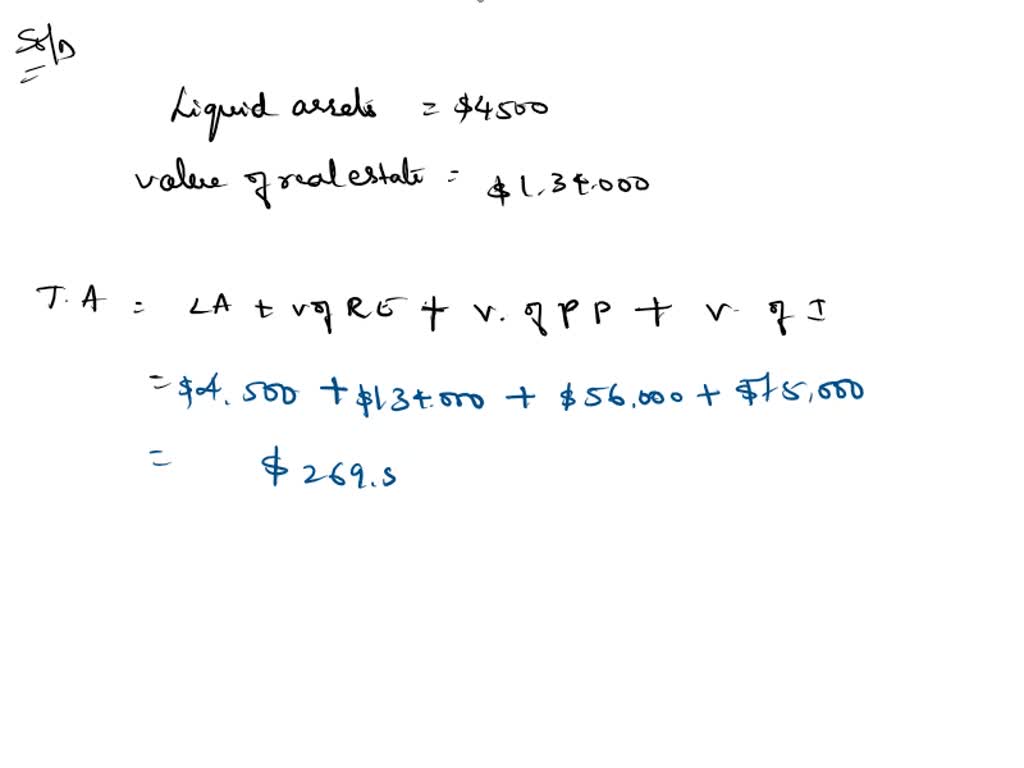 Soln
Liquid assets = $4500
value of real estate = $1.34.000
T.A = LA + v of RE + v. of PP + v. of I
= $4.500 + $134.000 + $56.000 + $75,000
= $269.5